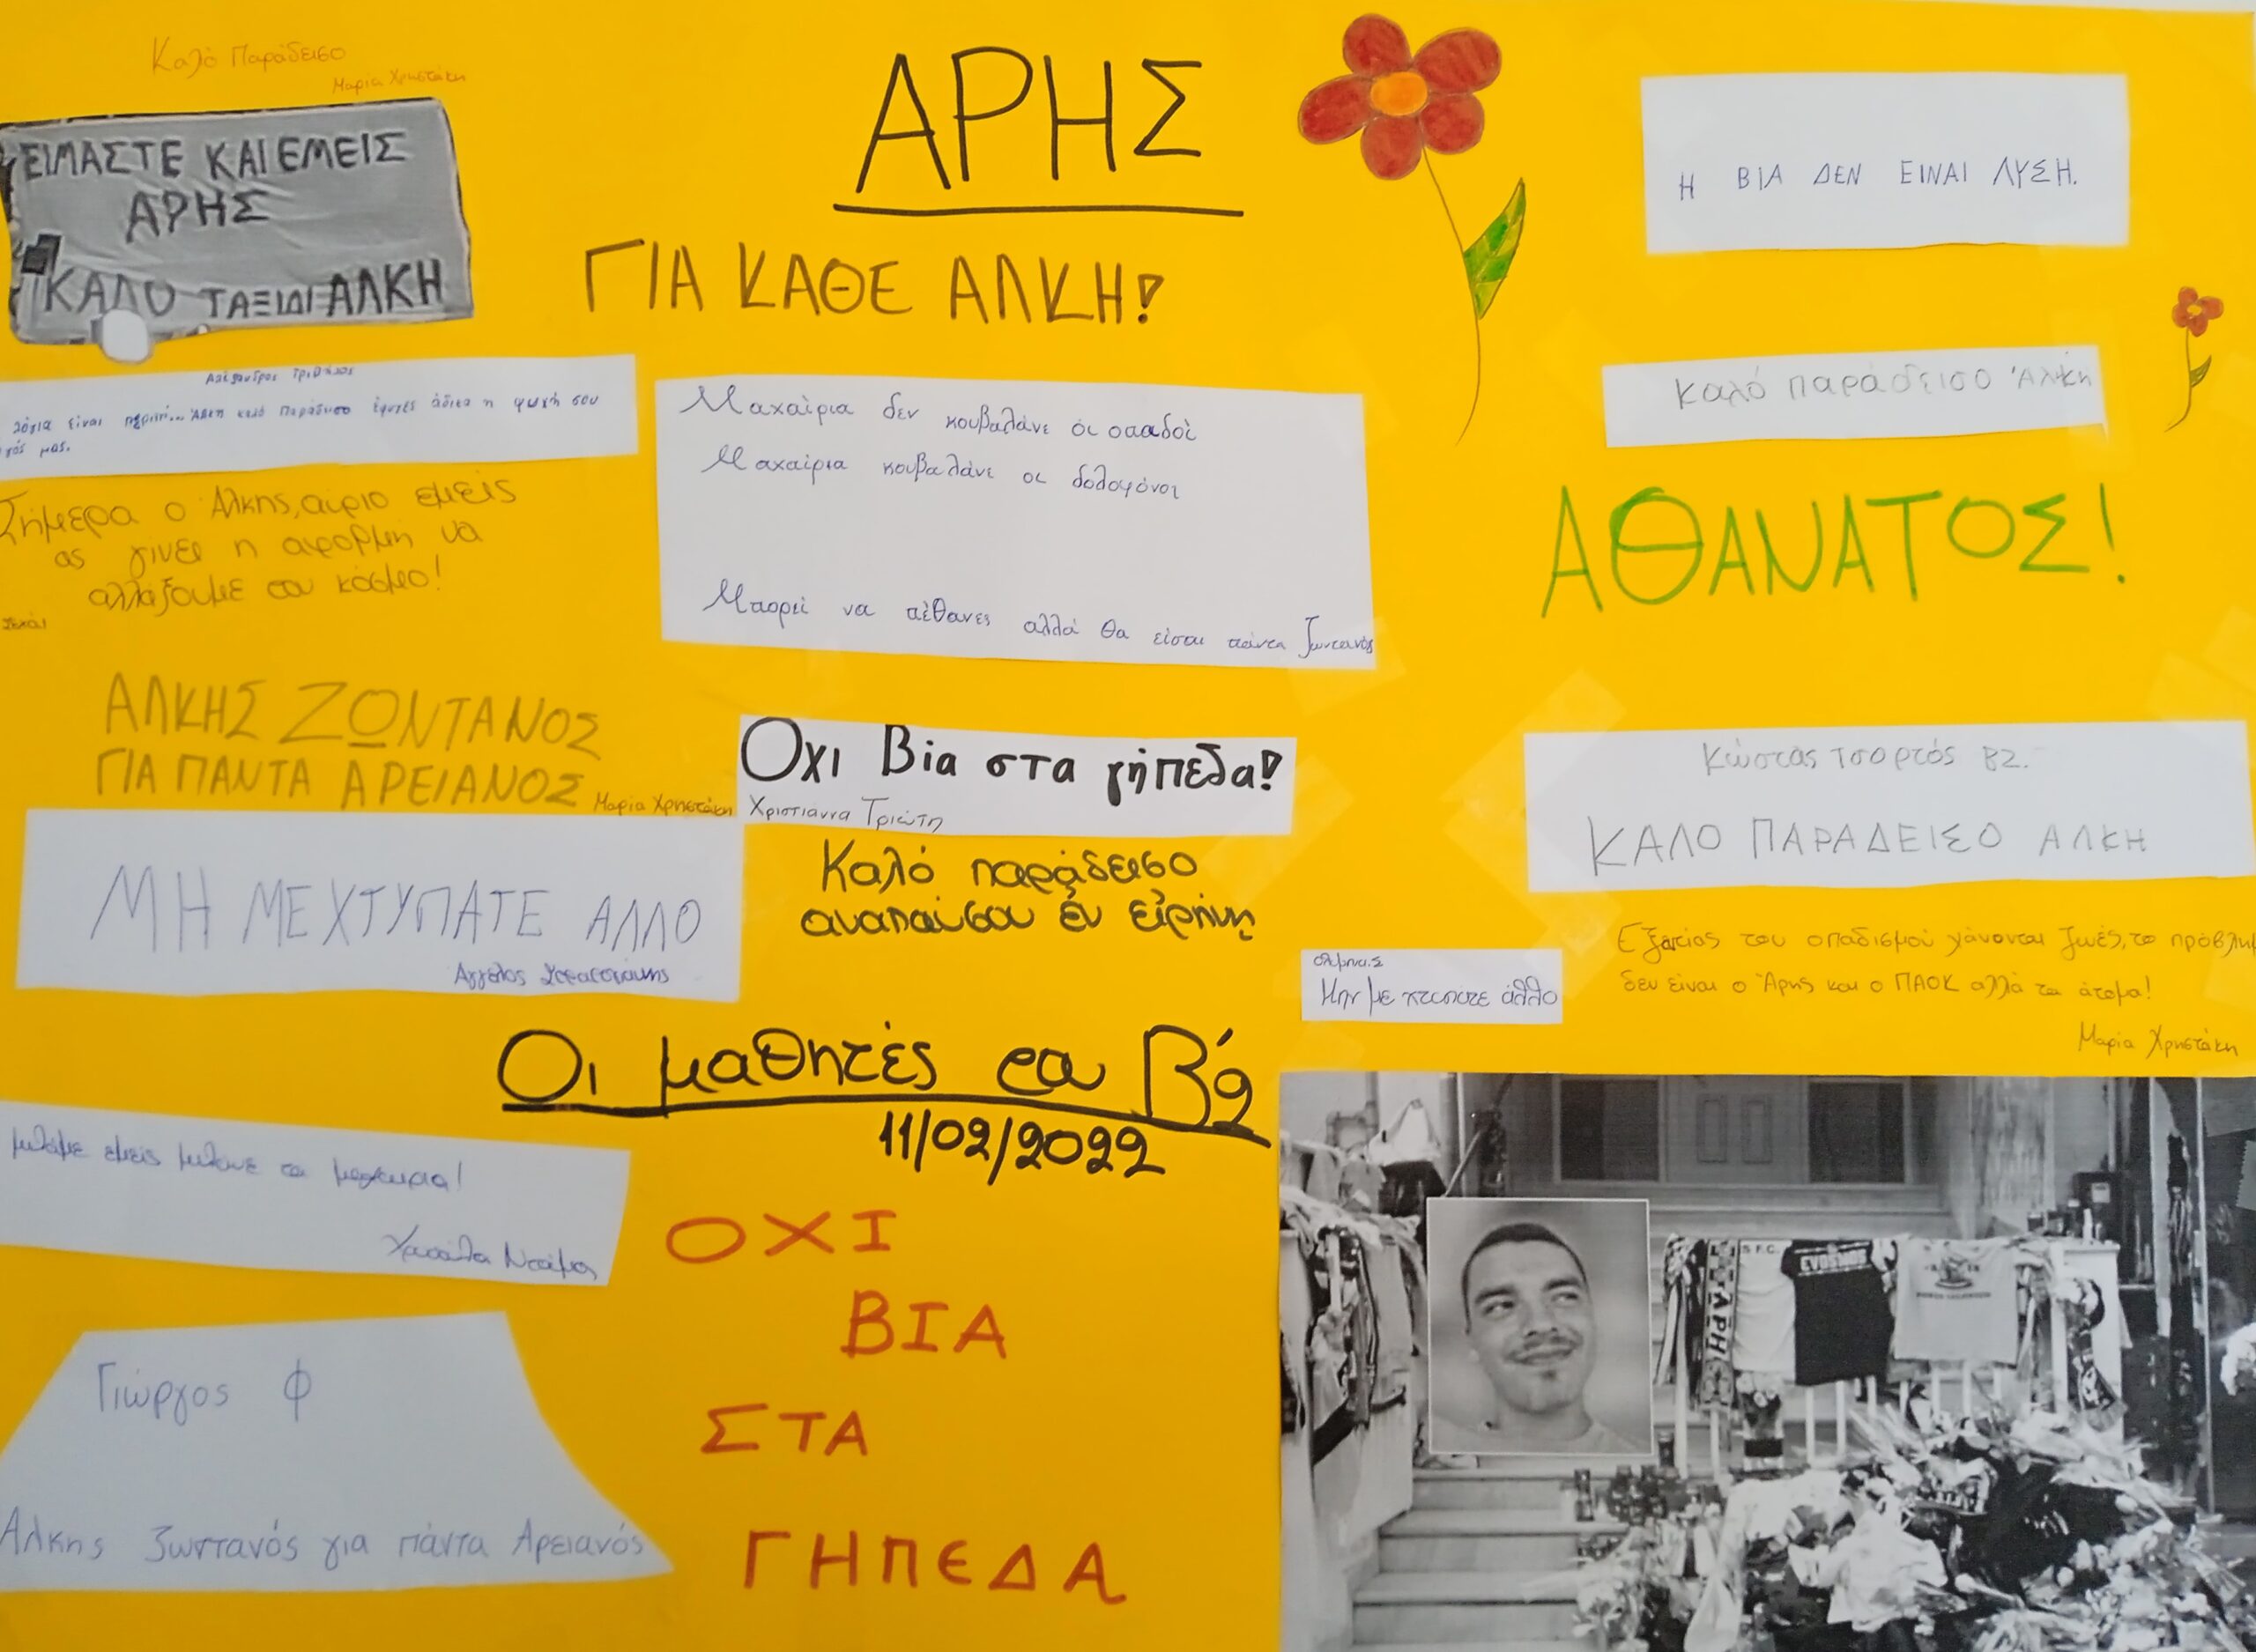 Καλό Παράδεισο
Μαρία Χρηστάκη
ΕΙΜΑΣΤΕ ΚΑΙ ΕΜΕΙΣ
ΑΡΗΣ
ΚΑΛΟ ΤΑΞΙΔΙ ΑΛΚΗ
ΑΡΗΣ
ΓΙΑ ΚΑΘΕ ΑΛΚΗ!
Η ΒΙΑ ΔΕΝ ΕΙΝΑΙ ΛΥΣΗ.
Καλό παράδεισο Άλκη
ΑΘΑΝΑΤΟΣ!
Αλέξανδρος
λόγια είναι περιττά... Άλκη καλό Παράδεισο έφυγες άδικα η ψυχή σου
μας.
Σήμερα ο Άλκης, αύριο εμείς
ας γίνει η αφορμή να
αλλάξουμε τον κόσμο!
Μαχαίρια δεν κουβαλάνε οι οπαδοί
Μαχαίρια κουβαλάνε οι δολοφόνοι
Μπορεί να πέθανες αλλά θα είσαι πάντα ζωντανός
ΑΛΚΗΣ ΖΩΝΤΑΝΟΣ
ΓΙΑ ΠΑΝΤΑ ΑΡΕΙΑΝΟΣ
Μαρία Χρηστάκη
Όχι Βία στα γήπεδα!
Χριστιαννα Τριώτη
Καλό παράδεισο
αναπαύσου έν εἰρήνῃ
Κώστας Τσορτός Β2.
ΚΑΛΟ ΠΑΡΑΔΕΙΣΟ ΑΛΚΗ
ΜΗ ΜΕ ΧΤΥΠΑΤΕ ΑΛΛΟ
Άγγελος
Μην με χτυπάτε άλλο
Εξαιτίας του οπαδισμού χάνονται ζωές, το πρόβλημ
δεν είναι ο Άρης και ο ΠΑΟΚ αλλά τα άτομα!
Μαρία Χρηστάκη
Οι μαθητές του Β'2
11/02/2022
μιλάμε εμείς μιλάνε τα μαχαίρια!
ΟΧΙ
ΒΙΑ
ΣΤΑ
ΓΗΠΕΔΑ
Γιώργος Φ
Άλκης ζωντανός για πάντα Αρειανός
S F.C.
ΑΡΗΣ